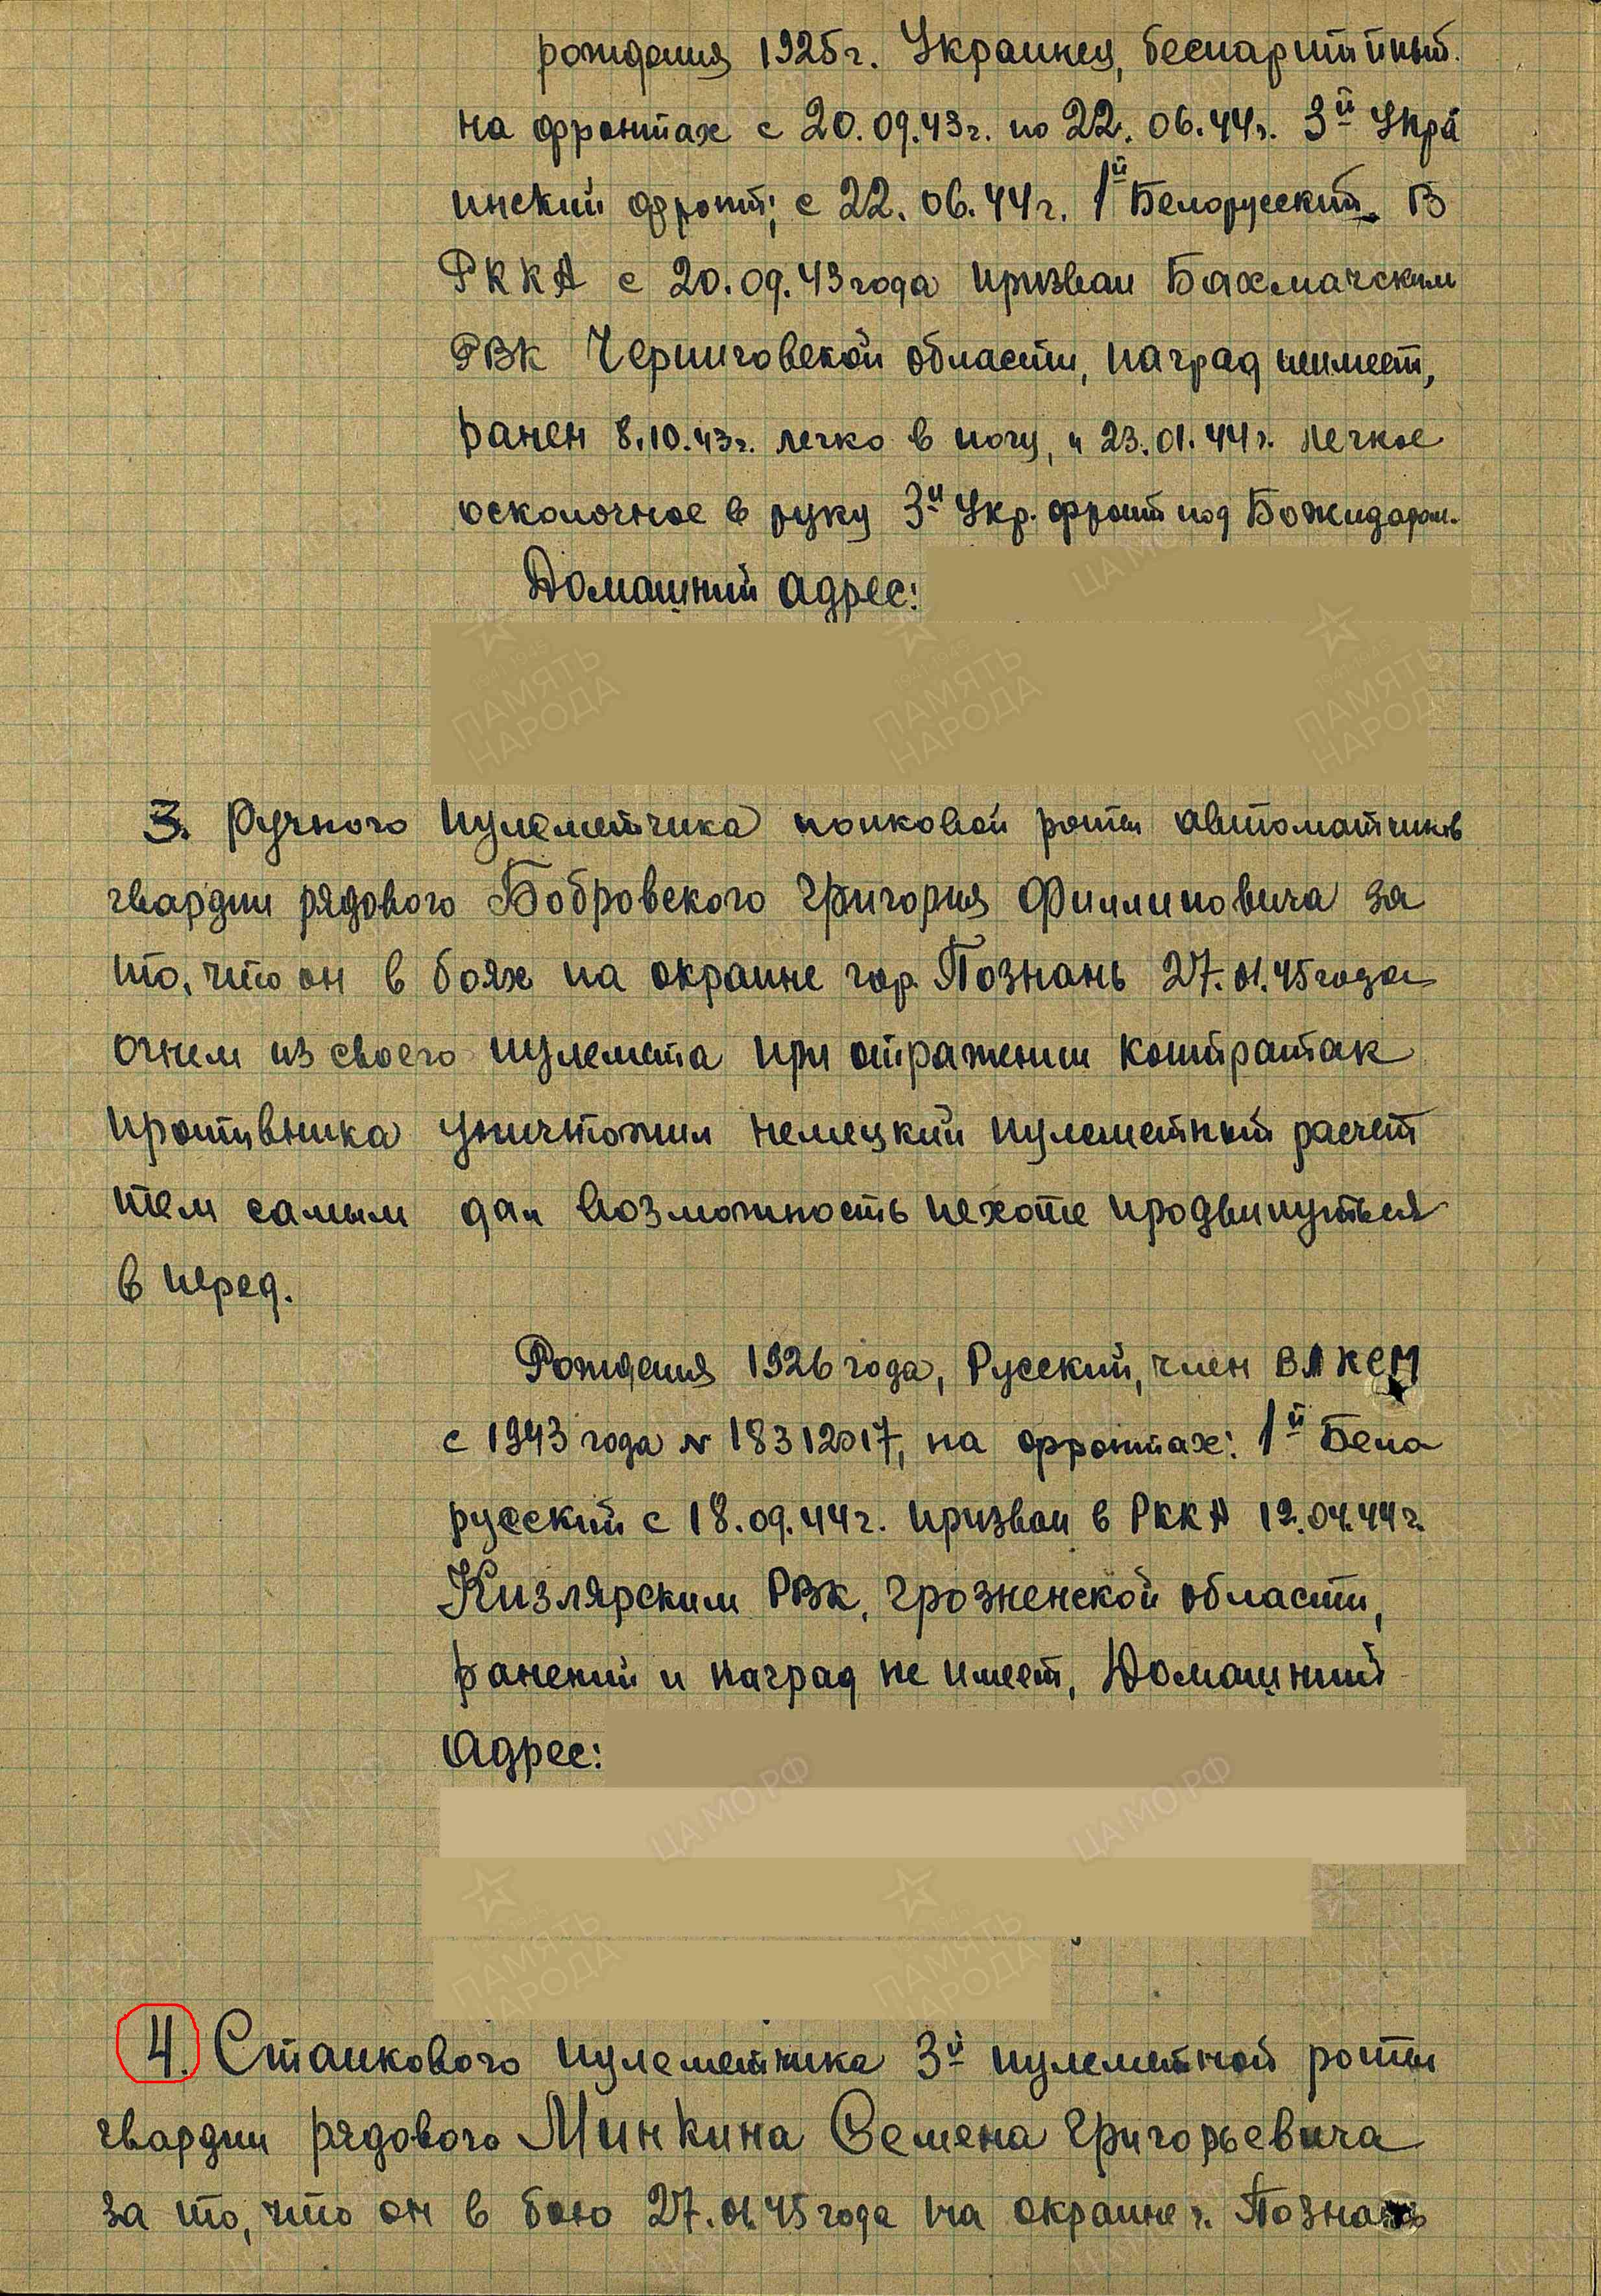 рождения 1925г. Украинец, беспартийный.
на фронтах с 20.09.43г. по 22.06.44г. 3й Укра
инский фронт; с 22.06.44г. 1й Белорусский. В
РККА с 20.09.43 года призван Бахмачским
РВК Черниговской области, наград неимеет,
ранен 8.10.43г. легко в ногу, и 23.01.44г. легкое
осколочное в руку 3й Укр. фронт под Божидаром.
Домашний адрес:
1941-1945
ПАМЯТЬ
НАРОДА
3. Ручного пулеметчика полковой роты автоматчиков
гвардии рядового Бобровского Григория Филлиповича за
то, что он в боях на окраине гор. Познань 27.01.45 года
огнем из своего пулемета при отражении контратак
противника уничтожил немецкий пулеметный расчет
тем самым дал возможность пехоте продвинуться
в перед.
Рождения 1926 года, Русский, член ВЛКСМ
с 1943 года № 18312017, на фронтах: 1й Бела
русский с 18.09.44г. призван в РККА 12.04.44г.
Кизлярским РВК, Грозненской области,
ранений и наград не имеет, Домашний
Адрес:
ЦА МО РФ
ПАМЯТЬ
НАРОДА
4. Станкового пулеметчика 3й пулеметной роты
гвардии рядового Минкина Семена Григорьевича
за то, что он в бою 27.01.45 года на окраине г. Познань